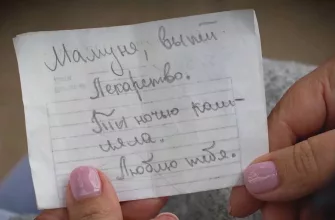 Мамуня, выпей
Лекарство.
Ты ночью каш-
ляла.
Люблю тебя.